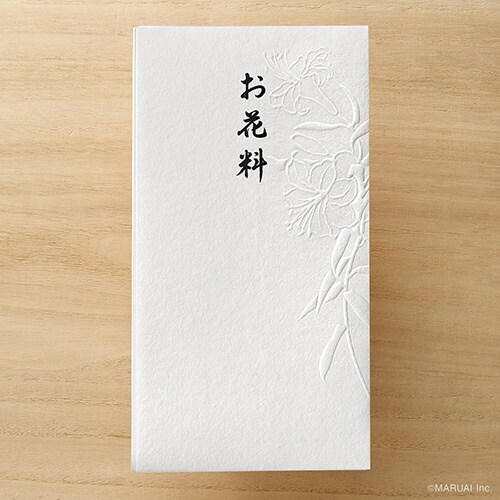 お花料
©MARUAI Inc.